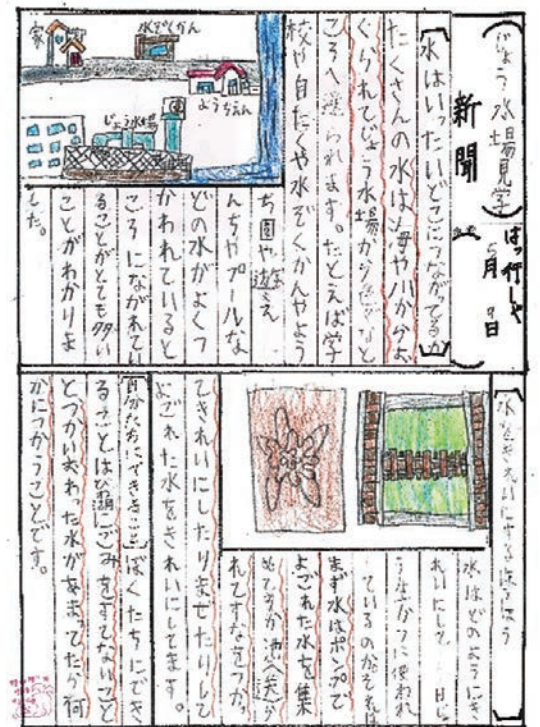 (じょう水場見学)
新聞
はっ行しゃ
5月9日
【水はいったいどこにつながってるか】
たくさんの水は海や川からよ
ぐられてじょう水場から色々なと
ころへ送られます。たとえば学
校や自たくや水ぞくかんやよう
ち園や遊え
んちやプールな
どの水がよくつ
かわれていると
ころにながれてい
ることがとても多い
ことがわかりま
した。
家
水ぞくかん
ようちえん
じょう水場
【水をきれいにするほうほう】
水はどのようにき
れいにして
使われ
ているのか。それ
まず水はポンプで
よごれた水を集
めてちか池へ送ら
れてすなをつかっ
てきれいにしたりまぜたりして
よごれた水をきれいにしてます。
【自分たちにできること】ぼくたちにでき
ることはびわ湖にごみをすてないこと
とつかいおわった水があまってたら何
かにつかうことです。